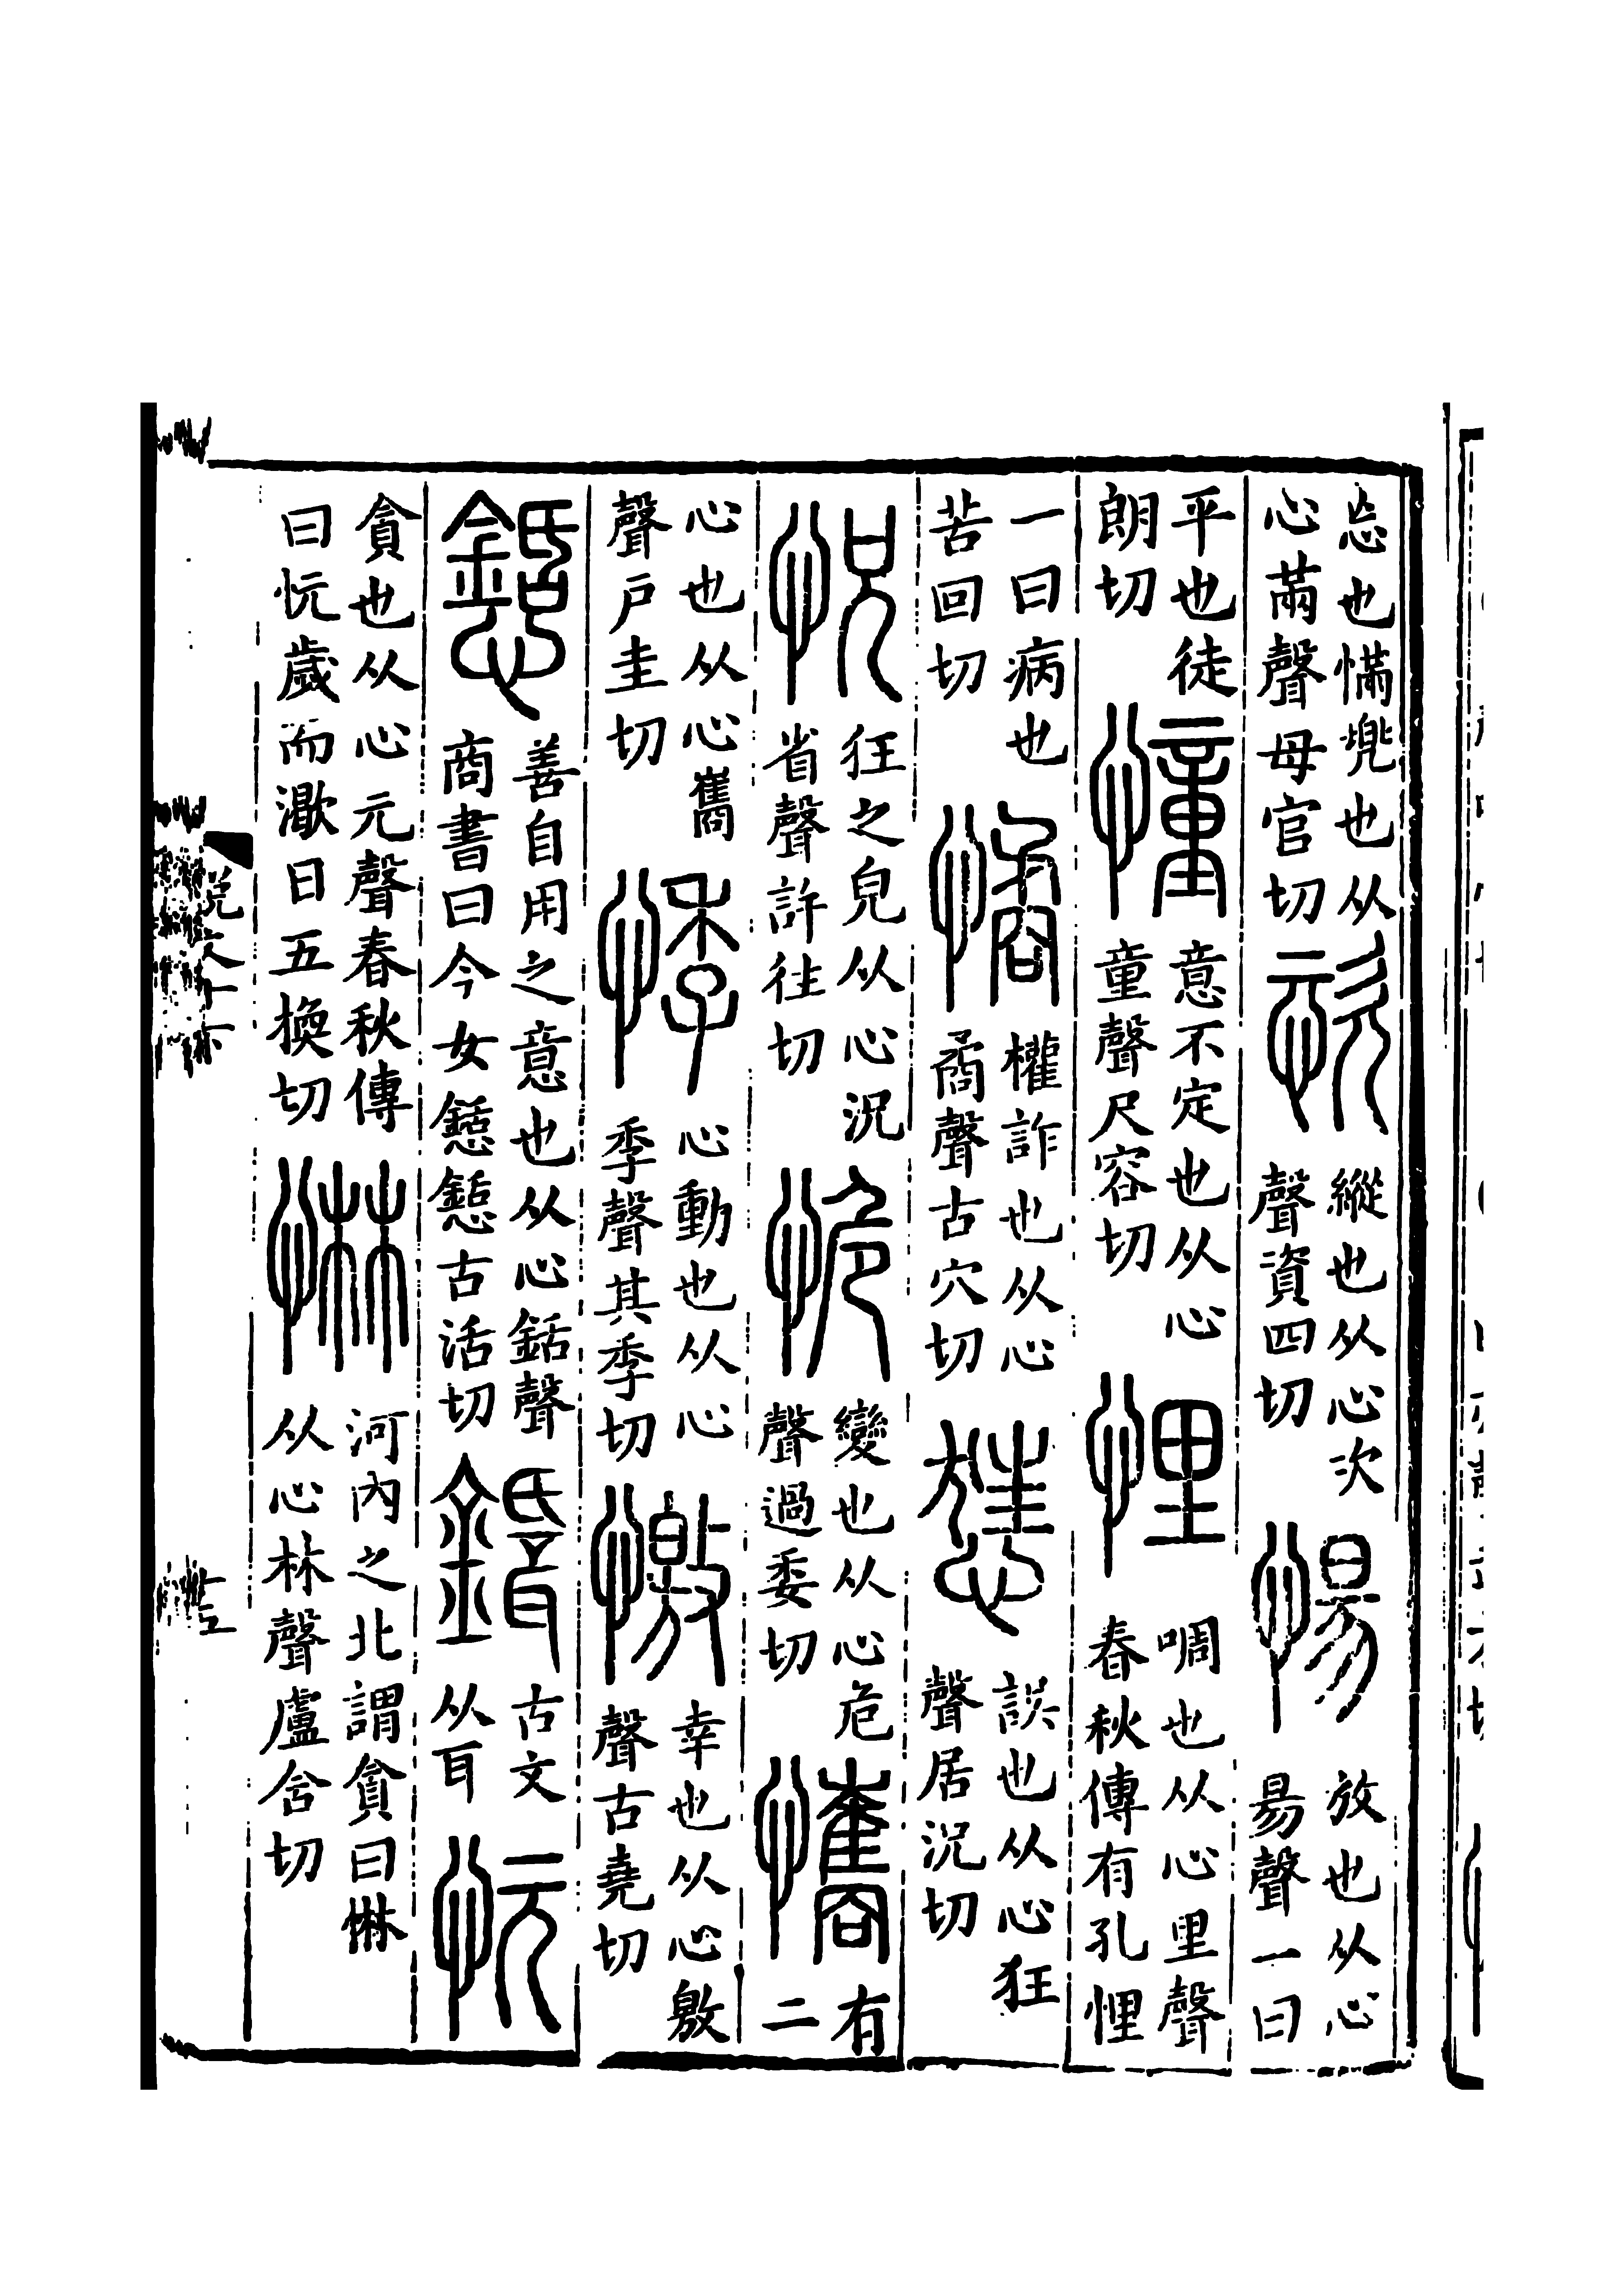 忘也慲兠也从心㒼聲母官切恣縱也从心次聲資四切愓放也从心昜聲一曰
平也徒朗切憧意不定也从心童聲尺容切悝啁也从心里聲春秋傳有孔悝
一曰病也苦回切憰權詐也从心矞聲古穴切誤也从心狂聲居況切
怳狂之皃从心況省聲許往切恑變也从心危聲過委切有二
心也从心巂聲戶圭切悸心動也从心季聲其季切憿幸也从心敫聲古堯切
𢢔善自用之意也从心銛聲商書曰今女𢢔𢢔古活切古文从耳忨
貪也从心元聲春秋傳曰忨歲而㵣日五換切惏河內之北謂貪曰惏从心林聲盧含切